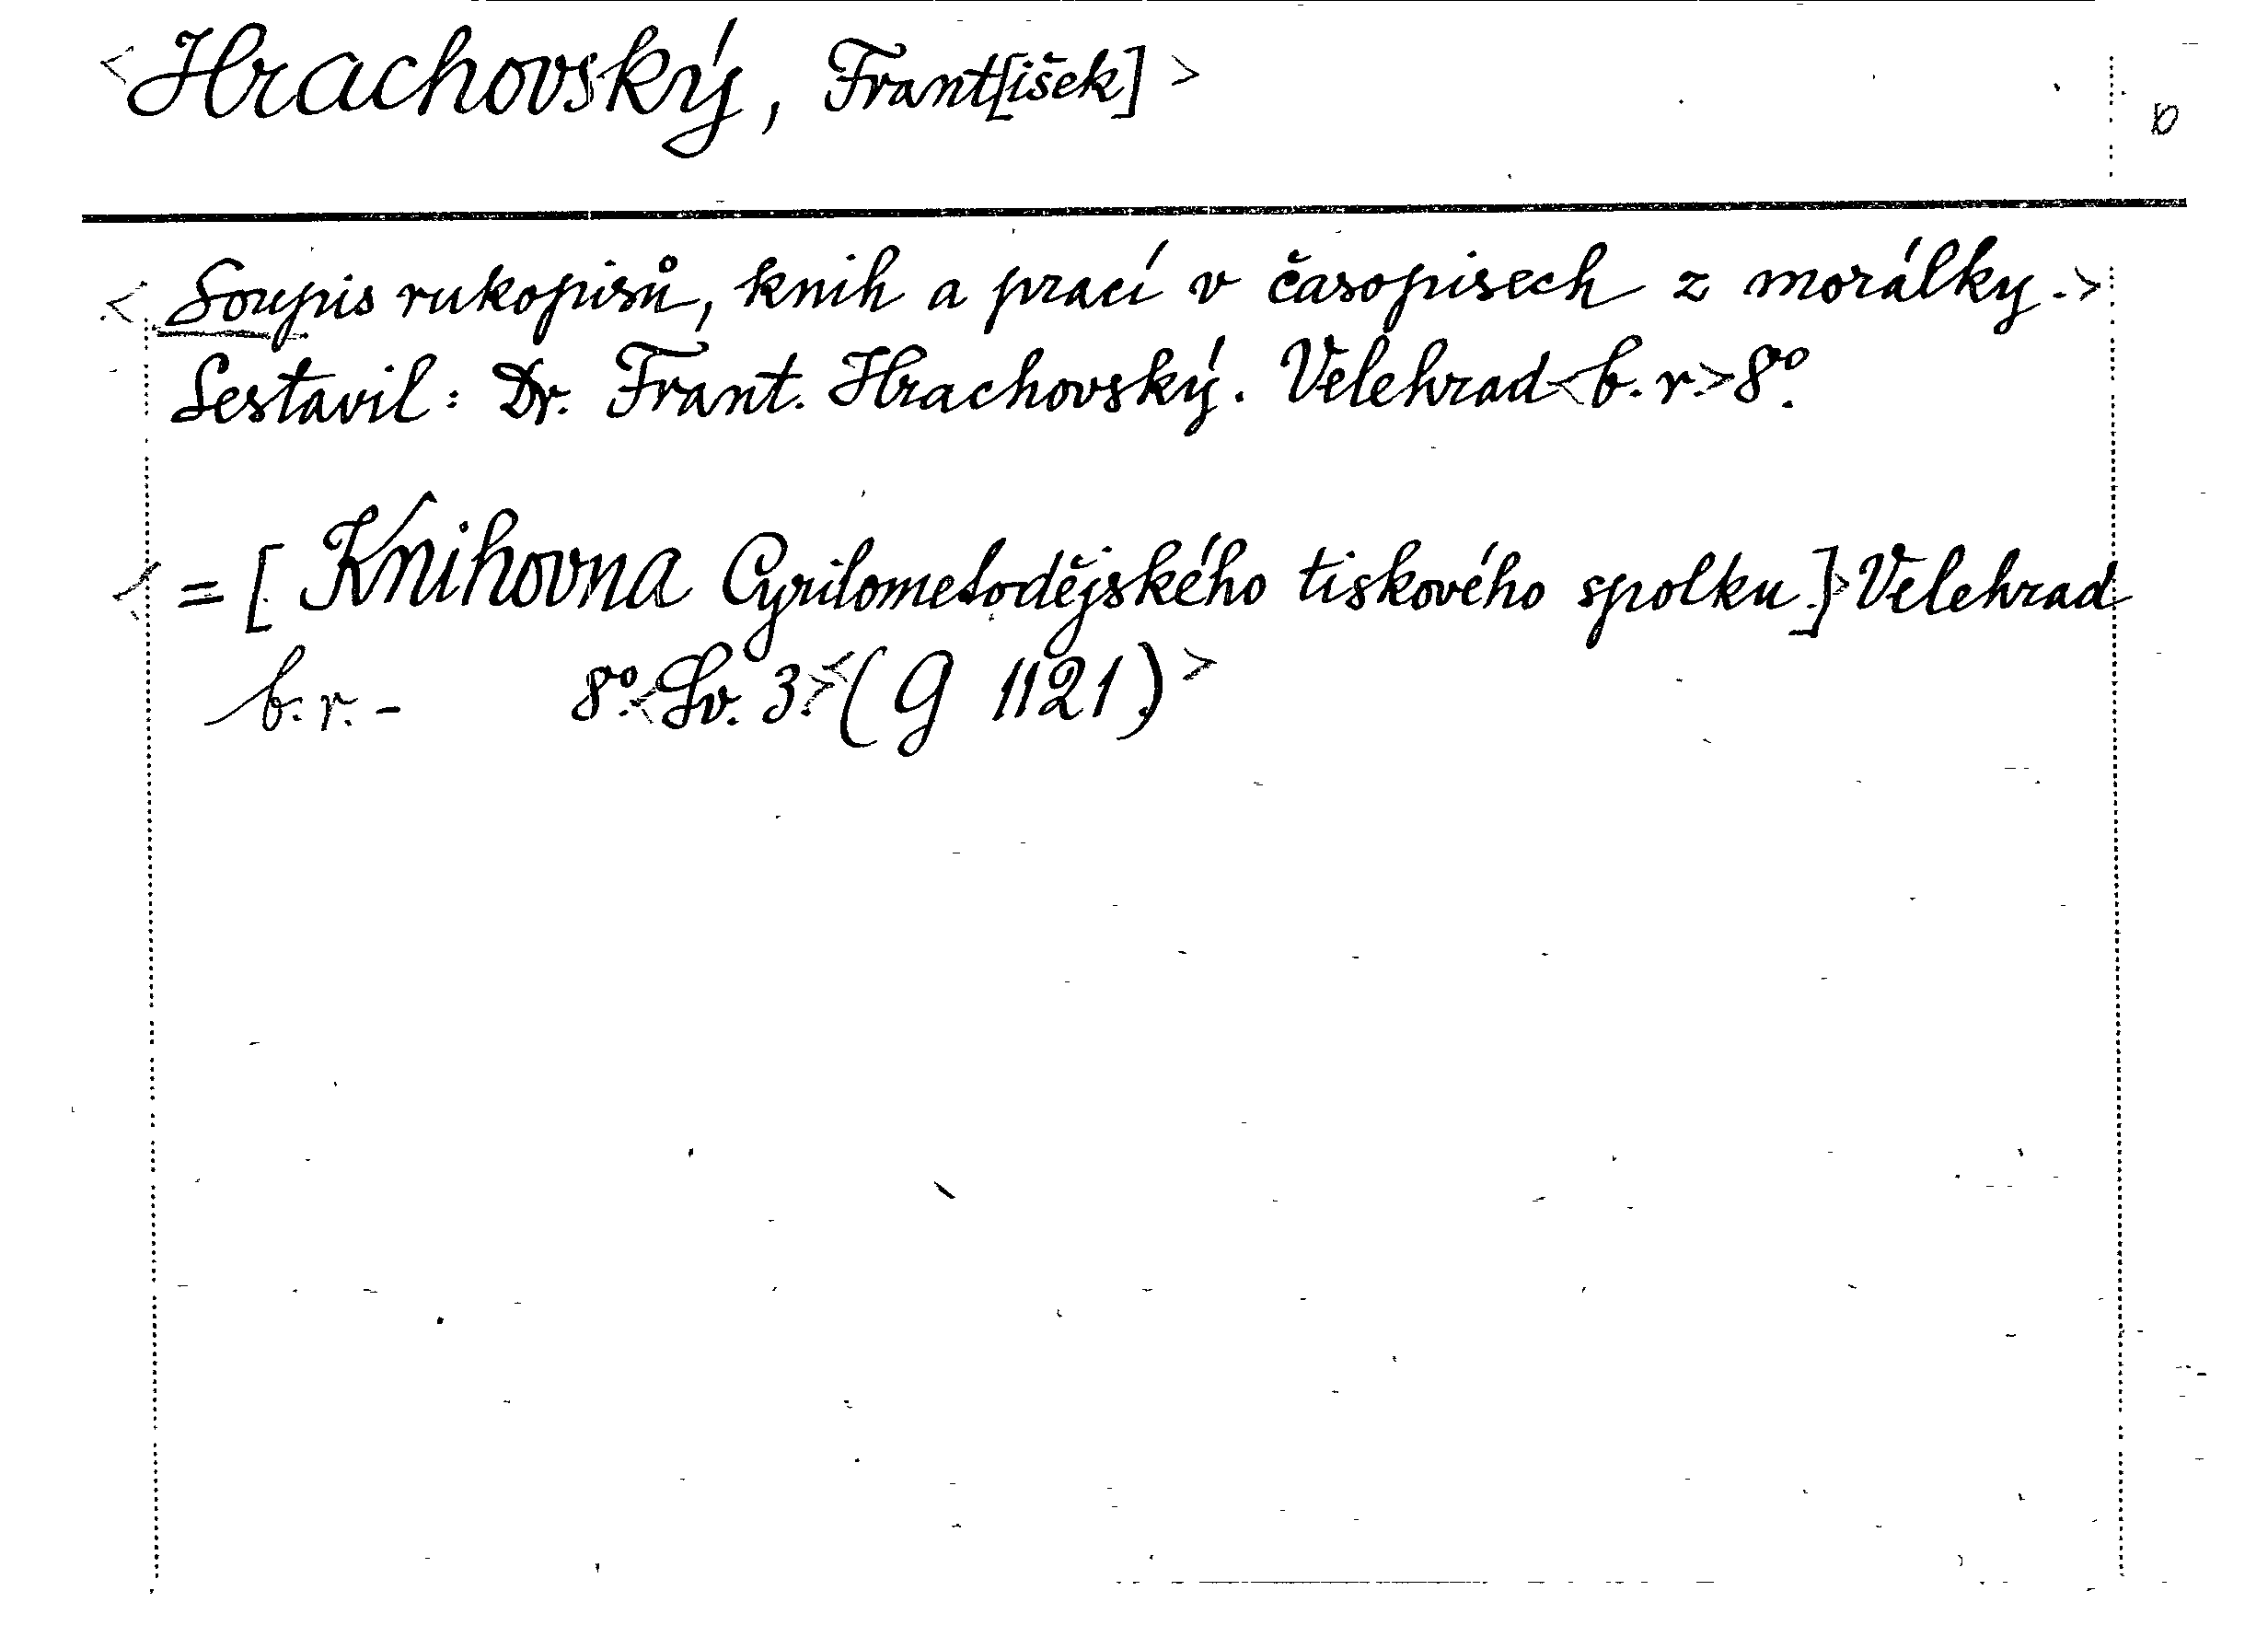 <Hrachovský, Frant[išek]>
<Soupis rukopisů, knih a prací v časopisech z morálky.>
Sestavil: Dr. Frant. Hrachovský. Velehrad <b. r.> 8°.
<= [Knihovna Cyrilometodějského tiskového spolku]> Velehrad
b. r. - 8°. <Sv. 3.> <(G 1121.)>